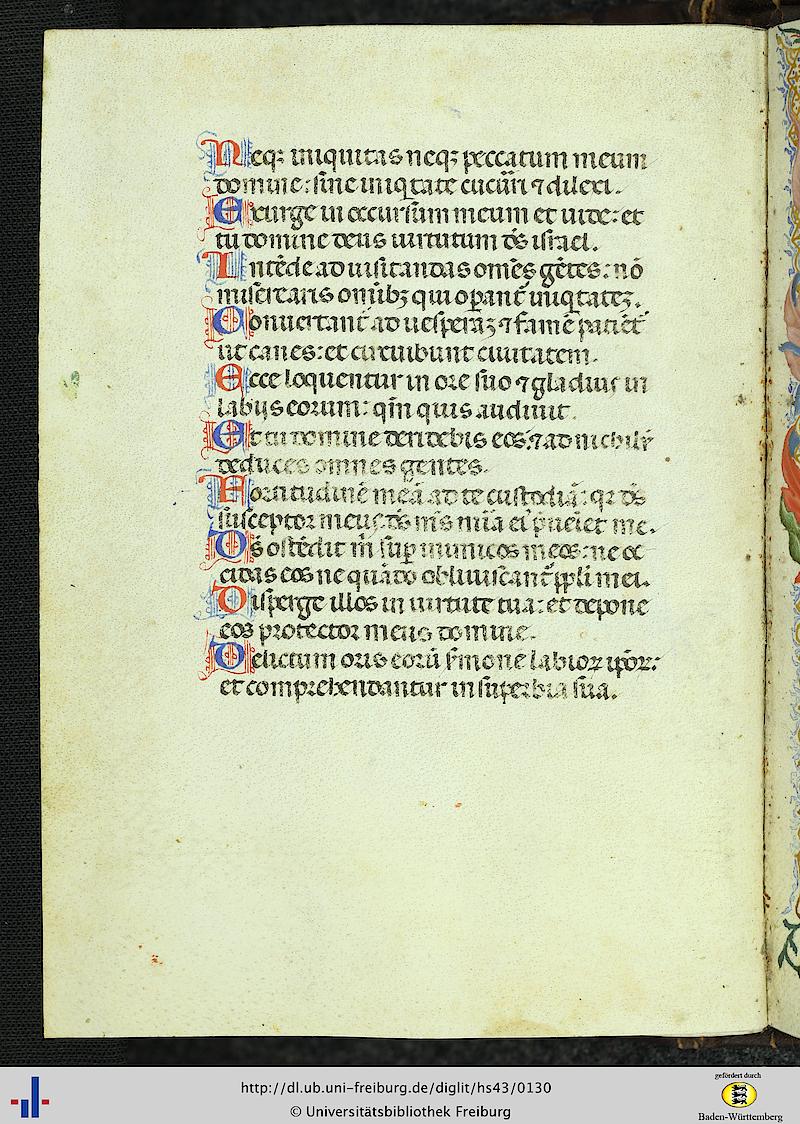 Neq; iniquitas neq; peccatum meum
domine: sine iniqtate cucurri ⁊ dilexi.
Exurge in occursum meum et uide: et
tu domine deus uirtutum ds̄ israel.
Intēde ad uisitandas omēs gētes: nō
miserearis omībꝫ qui operant̄ iniqtateꝫ.
Conuertant̄ ad uesperaꝫ ⁊ famē patiēt̄
ut canes: et circuibunt ciuitatem.
Ecce loquentur in ore suo ⁊ gladius in
labijs eorum: qm̄ quis audiuit
Et tu domine deridebis eos: ⁊ ad nichilū
deduces omnes gentes.
Fortitudinē meā ad te custodiā: qꝛ ds̄
susceptor meus: ds̄ ms̄ mīa eiꝰ pueiet me.
Ds̄ ostēdit m̄ sup inimicos meos: ne oc
cidas eos ne quādo obliuiscant̄ ppli mei.
Disperge illos in uirtute tua: et depone
eos protector meus domine.
Delictum oris eorū sermonē labioꝝ ipoꝝ:
et comprehendantur in superbia sua.
http://dl.ub.uni-freiburg.de/diglit/hs43/0130
© Universitätsbibliothek Freiburg
gefördert durch
Baden-Württemberg